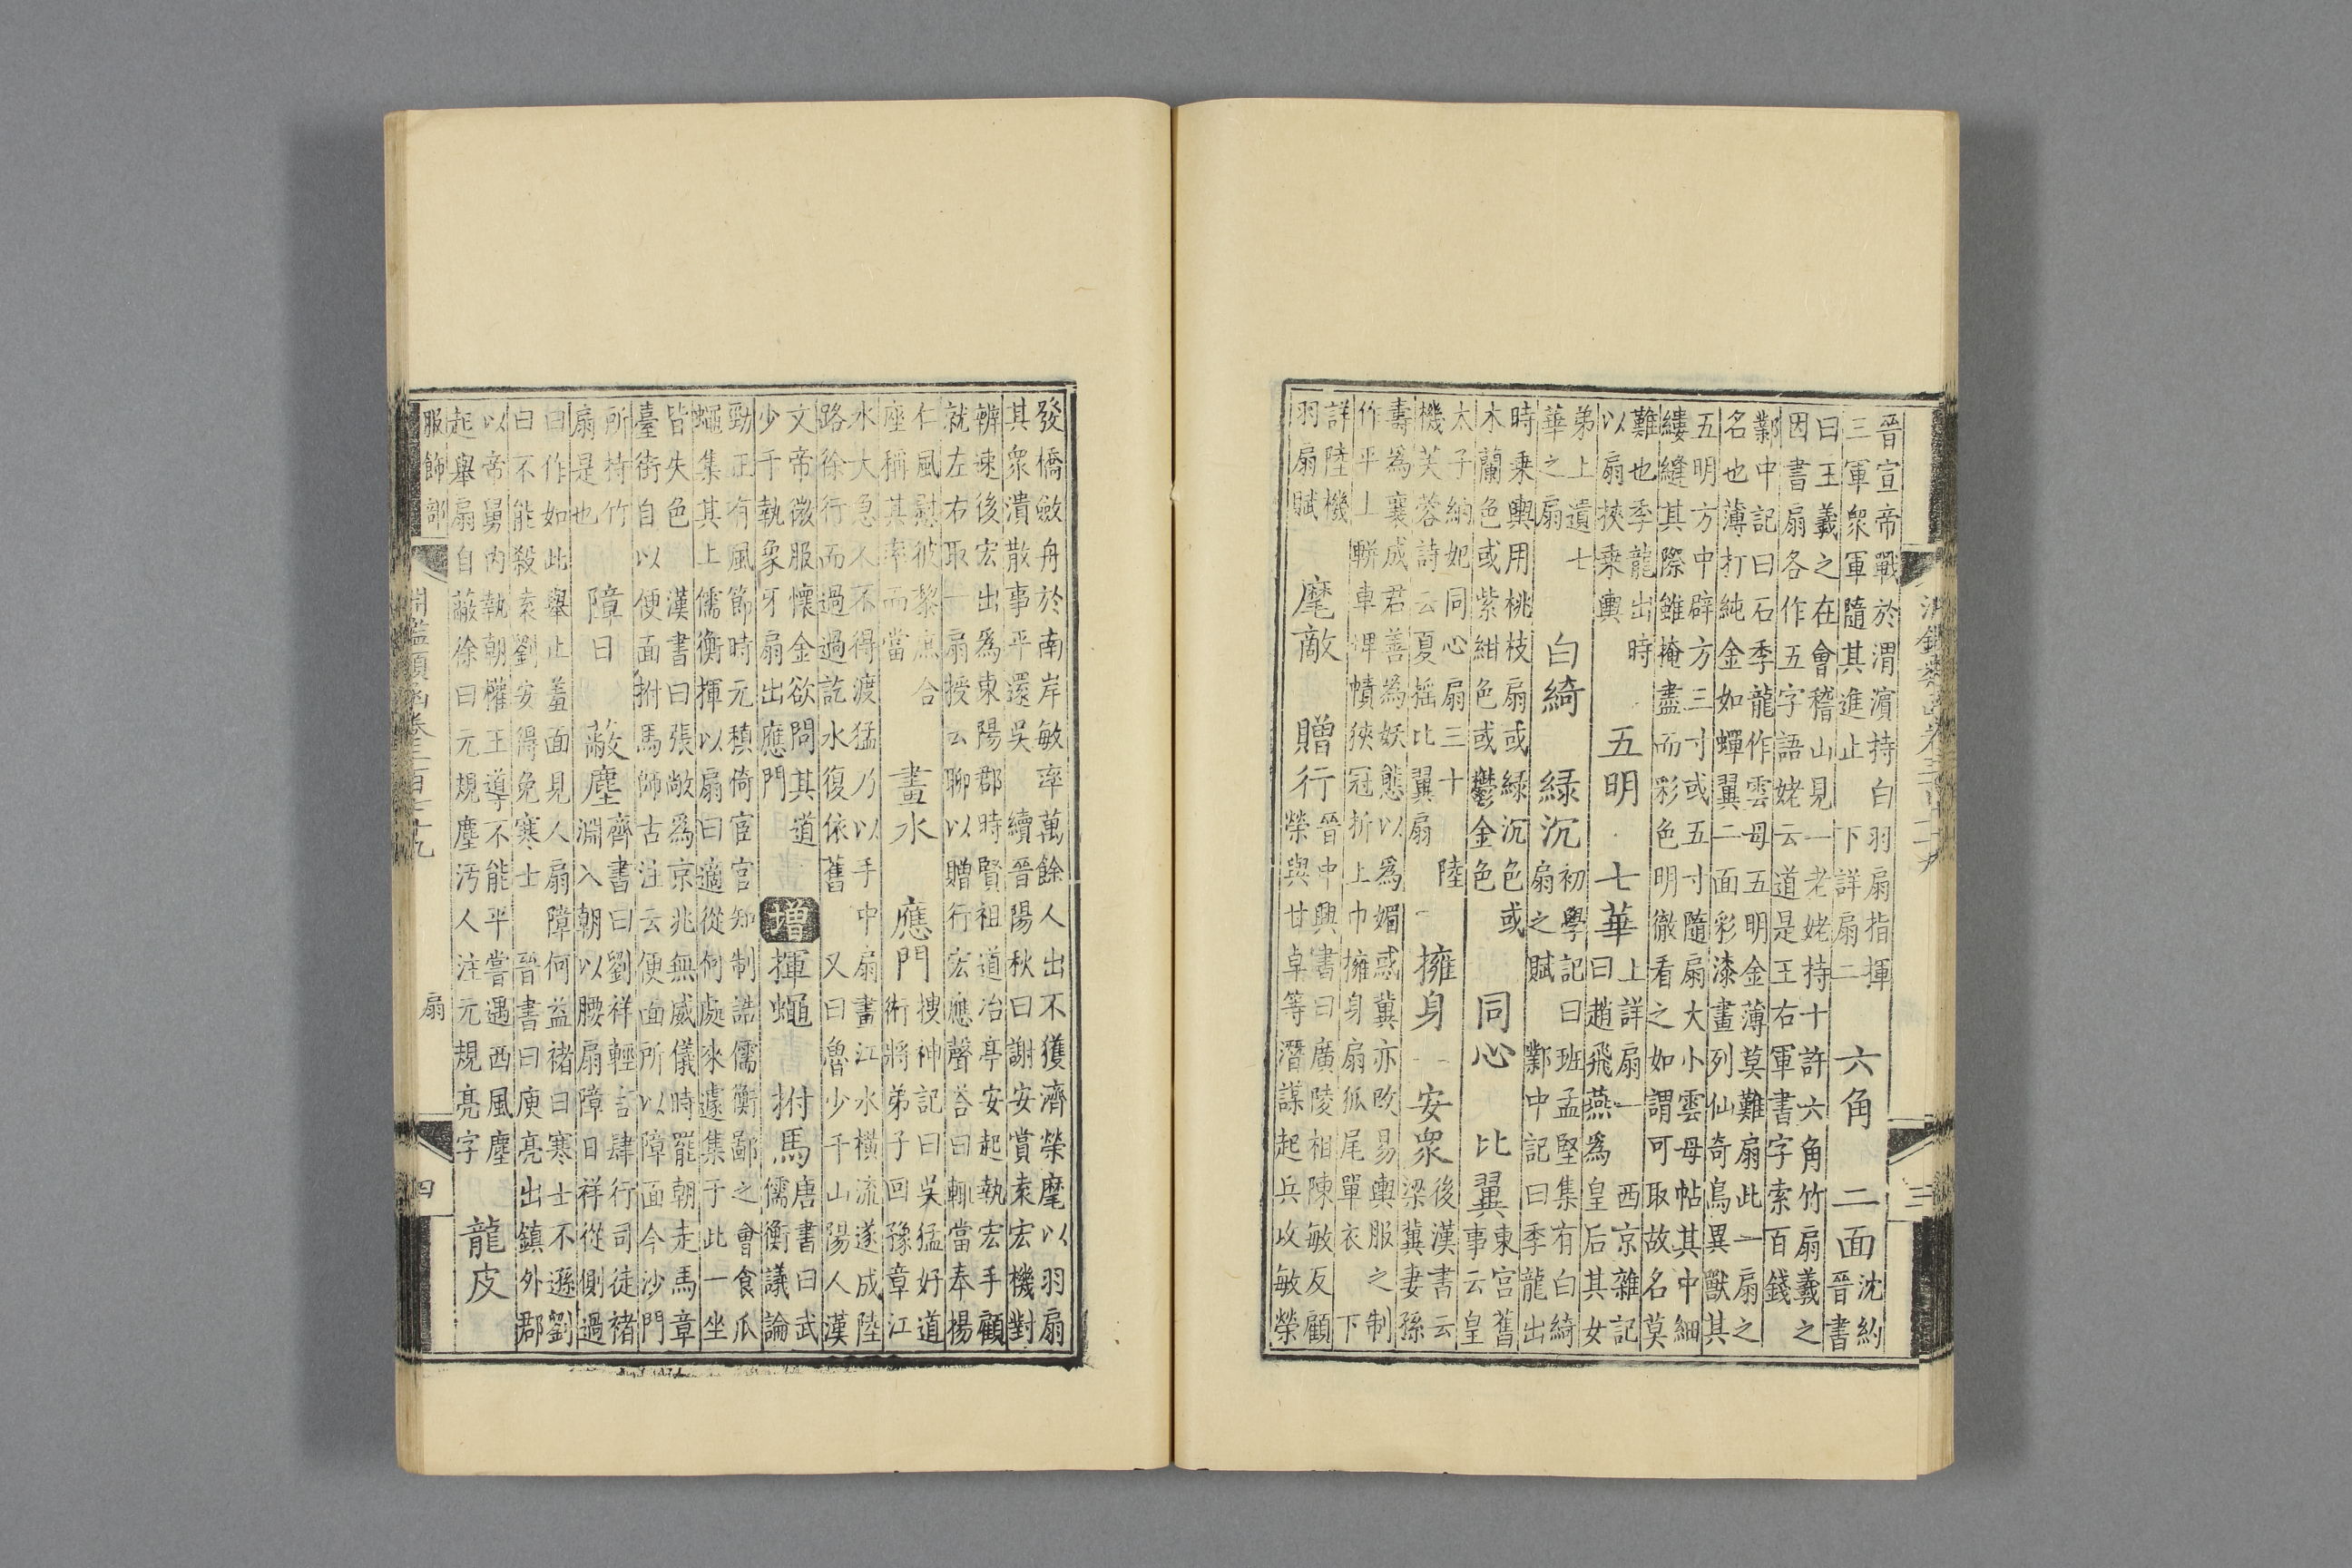 淵鑑類函卷三百七十九
三
晉宣帝戰於渭濱持白羽扇指揮
三軍衆軍隨其進止 下詳扇二
六角 二面
沈約
晉書
曰王羲之在會稽山見一老姥持十許六角竹扇羲之
因書扇各作五字語姥云道是王右軍書字索百錢
鄴中記曰石季龍作雲母五明金薄莫難扇此一扇之
名也薄打純金如蟬翼二面彩漆畫列仙奇鳥異獸其
五明方中辟方三寸或五寸隨扇大小雲母帖其中細
縷縫其際雖掩盡而彩色明徹看之如謂可取故名莫
難也季龍出時
以扇挾乘輿
五明 七華
上詳扇一 西京雜記
曰趙飛燕爲皇后其女
弟上遺七
華之扇
白綺 緑沉
初學記曰班孟堅集有白綺
扇之賦 鄴中記曰季龍出
時乘輿用桃枝扇或緑沉色或
木蘭色或紫紺色或鬱金色
同心 比翼
東宮舊
事云皇
太子納妃同心扇三十 陸
機芙蓉詩云夏摇比翼扇
擁身 安衆
後漢書云
梁冀妻孫
壽爲襄成君善爲妖態以爲媚惑冀亦改易輿服之制
作平上軿車埤幘狹冠折上巾擁身扇狐尾單衣 下
詳陸機
羽扇賦
麾敵 贈行
晉中興書曰廣陵相陳敏反顧
榮與甘卓等潛謀起兵攻敏榮
發橋斂舟於南岸敏率萬餘人出不獲濟榮麾以羽扇
其衆潰散事平還吳 續晉陽秋曰謝安賞袁宏機對
辨速後宏出爲東陽郡時賢祖道冶亭安起執宏手顧
就左右取一扇授云聊以贈行宏應聲答曰輒當奉楊
仁風慰彼黎庶合
座稱其率而當
畫水 應門
搜神記曰吳猛好道
術將弟子回豫章江
水大急人不得渡猛乃以手中扇畫江水橫流遂成陸
路徐行而過過訖水復依舊 又曰魯少千山陽人漢
文帝微服懷金欲問其道
少千執象牙扇出應門
增
揮蠅 拊馬
唐書曰武
儒衡議論
勁正有風節時元稹倚宦官知制誥儒衡鄙之會食瓜
蠅集其上儒衡揮以扇曰適從何處來遽集于此一坐
皆失色 漢書曰張敞爲京兆無威儀時罷朝走馬章
臺街自以便面拊馬師古注云便面所以障面今沙門
所持竹
扇是也
障日 蔽塵
齊書曰劉祥輕言肆行司徒褚
淵入朝以腰扇障日祥從側過
曰作如此舉止羞面見人扇障何益褚曰寒士不遜劉
曰不能殺袁劉安得免寒士 晉書曰庾亮出鎮外郡
以帝舅內執朝權王導不能平嘗遇西風塵
起舉扇自蔽徐曰元規塵汚人注元規亮字
龍皮
服飾部
淵鑑類函卷三百七十九
扇
四